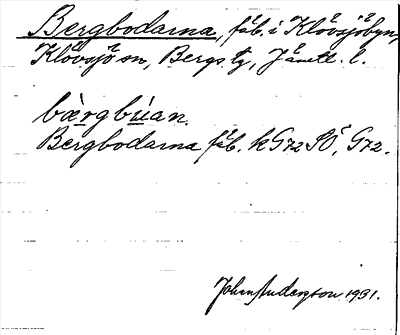 Bergbodarna, fäb. i Klövsjöbyn,
Klövsjö sn, Bergs tg, Jämtl. l.
bæ̀rgbúan.
Bergbodarna fäb. kG72SÖ, G72.
Johan Anderson 1931.